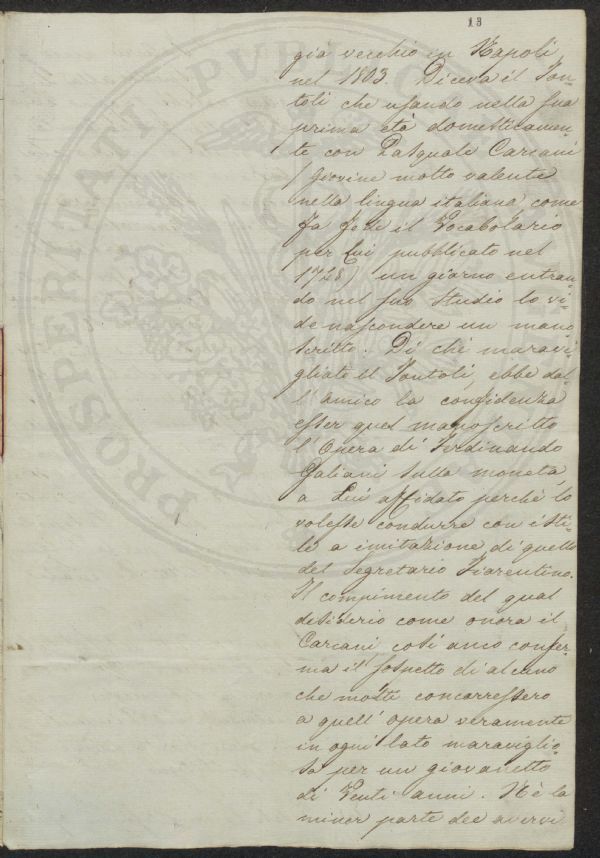 13
già vecchio in Napoli
nel 1803. Diceva il Fon-
toli che usando nella sua
prima età domesticamen-
te con Pasquale Carcani
/giovine molto valente
nella lingua italiana, come
fa fede il Vocabolario
per Lui pubblicato nel
1728/ un giorno entran-
do nel suo studio lo vi-
de nascondere un mano
scritto. Di che maravi-
gliato il Fontoli, ebbe dal-
l'amico la confidenza
esser quel manoscritto
l'Opera di Ferdinando
Galiani sulla moneta
a Lui affidato perchè lo
volesse condurre con isti-
le a imitazione di quello
del Segretario Fiorentino.
Il compimento del qual
desiderio come onora il
Carcani così anco confer-
ma il sospetto di alcuno
che molti concorressero
a quell'opera veramente
in ogni lato maraviglio-
sa per un giovanetto
di Venti anni. Nè la
minor parte dee avervi
PROSPERITATI PVBLICAE